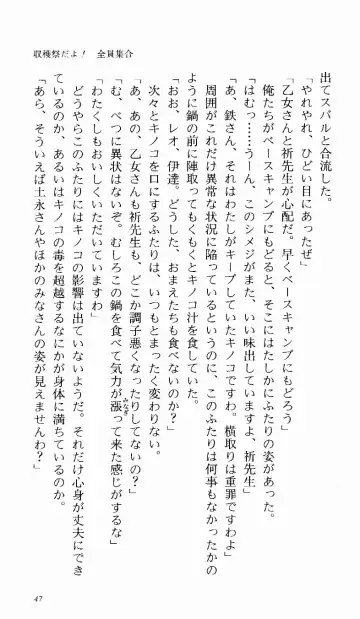 収穫祭だよ！　全員集合
出てスバルと合流した。
「やれやれ、ひどい目にあったぜ」
「乙女さんと祈先生が心配だ。早くベースキャンプにもどろう」
　俺たちがベースキャンプにもどると、そこにはたしかにふたりの姿があった。
「はむっ……うーん、このシメジがまた、いい味出していますよ、祈先生」
「あ、鉄さん、それはわたしがキープしていたキノコですわ。横取りは重罪ですわよ」
　周囲がこれだけ異常な状況に陥っているというのに、このふたりは何事もなかったかの
ように鍋の前に陣取ってもくもくとキノコ汁を食していた。
「おお、レオ、伊達。どうした、おまえたちも食べないのか？」
　次々とキノコを口にするふたりは、いつもとまったく変わりない。
「あ、あの、乙女さんも祈先生も、どこか調子悪くなったりしてないの？」
「む、べつに異状はないぞ。むしろこの鍋を食べて気力が張って来た感じがするな」
「わたくしもおいしくいただいていますわ」
　どうやらこのふたりにはキノコの影響は出ていないようだ。だてに心身が丈夫にでき
ているのか、あるいはキノコの毒を超越するなにかが身体に満ちているのか。
「あら、そういえば土永さんやほかのみなさんの姿が見えませんわ？」
47